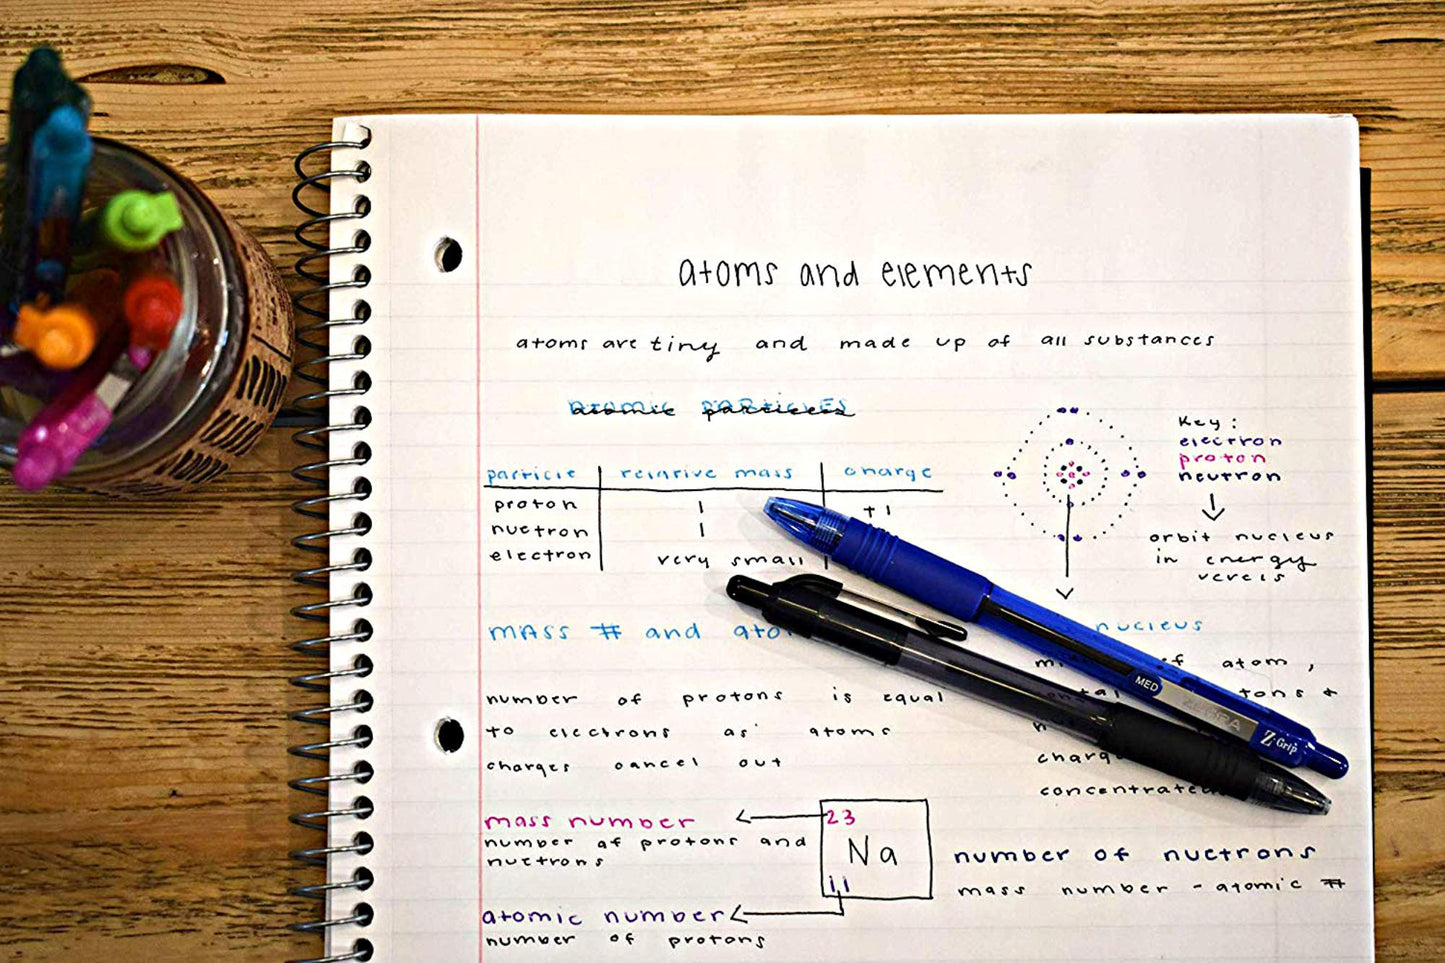 atoms and elements
atoms are tiny and made up of all substances
atomic particles
particle relative mass charge
proton 1 +1
nuetron 1
electron very small
Key:
electron
proton
neutron
orbit nucleus
in energy
MASS # and
nucleus
of atom,
+
number of protons is equal
to electrons as atoms
charges cancel out
concentrated
MED
ZEBRA
Z-Grip
mass number
number of protons and
nuetrons
23
Na
11
atomic number
number of protons
number of nuetrons
mass number - atomic #